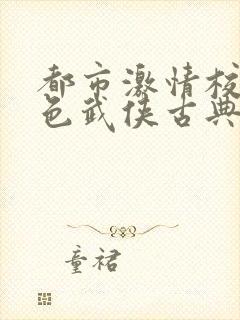 都市激情校
色武侠古典
童裙